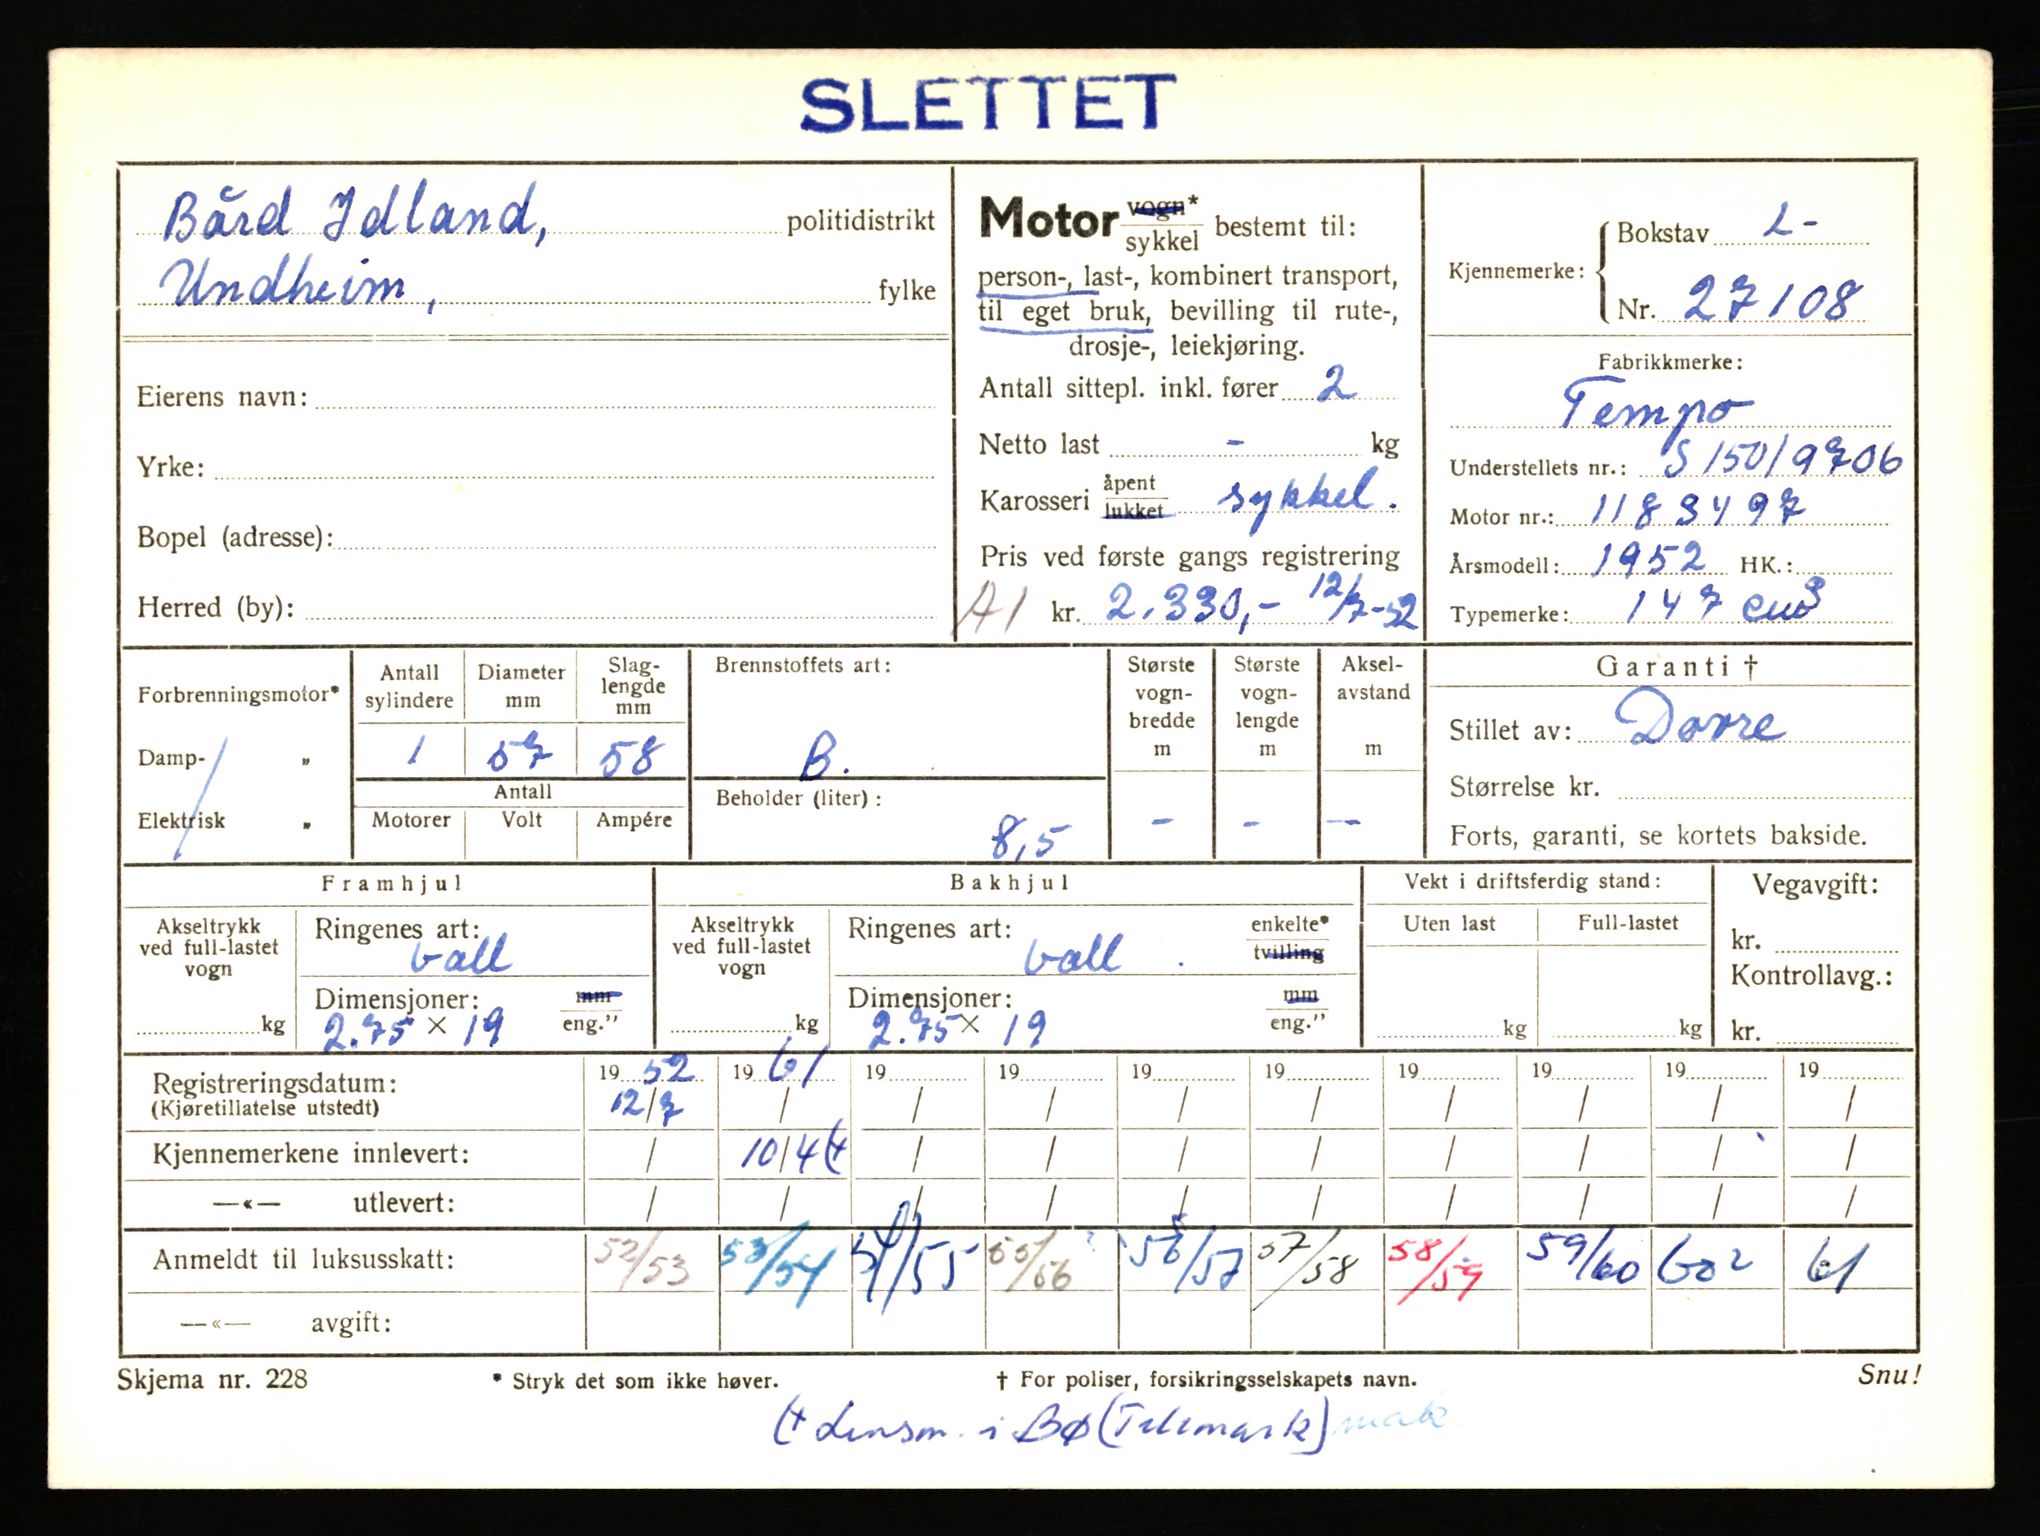 SLETTET
Bård Idland, politidistrikt
Undheim, fylke
Eierens navn:
Yrke:
Bopel (adresse):
Herred (by):
Motor vogn* sykkel bestemt til:
person-, last-, kombinert transport,
til eget bruk, bevilling til rute-,
drosje-, leiekjøring.
Antall sittepl. inkl. fører 2
Netto last - kg
Karosseri åpent lukket sykkel.
Pris ved første gangs registrering
A1 kr. 2.330,- 12/7-52
Kjennemerke: Bokstav L-
Nr. 27108
Fabrikkmerke:
Tempo
Understellets nr.: S 150/9706
Motor nr.: 1183497
Årsmodell: 1952 HK.:
Typemerke: 147 cm3
Forbrenningsmotor*
Damp- „
Elektrisk „
Antall sylindere Diameter mm Slag-lengde mm
1 57 58
Antall
Motorer Volt Ampére
Brennstoffets art:
B.
Beholder (liter):
8,5
Største vogn-bredde m Største vogn-lengde m Aksel-avstand m
- - -
Garanti †
Stillet av: Dovre
Størrelse kr.
Forts, garanti, se kortets bakside.
Framhjul
Akseltrykk ved full-lastet vogn
kg
Ringenes art:
ball
Dimensjoner: mm eng."
2.75 × 19
Bakhjul
Akseltrykk ved full-lastet vogn
kg
Ringenes art: enkelte* tvilling
ball
Dimensjoner: mm eng."
2.75 × 19
Vekt i driftsferdig stand:
Uten last Full-lastet
kg kg
Vegavgift:
kr.
Kontrollavg.:
kr.
Registreringsdatum: 19 52 19 61 19 19 19 19 19 19 19 19
(Kjøretillatelse utstedt) 12/7 / / / / / / / / /
Kjennemerkene innlevert: / 10/4 (+ / / / / / / / /
—«— utlevert: / / / / / / / / / /
Anmeldt til luksusskatt: 52/53 53/54 54/55 55/56 56/57 57/58 58/59 59/60 602 61
—«— avgift:
Skjema nr. 228 * Stryk det som ikke høver. † For poliser, forsikringsselskapets navn. Snu!
(+ Lensm. i Bø (Telemark)